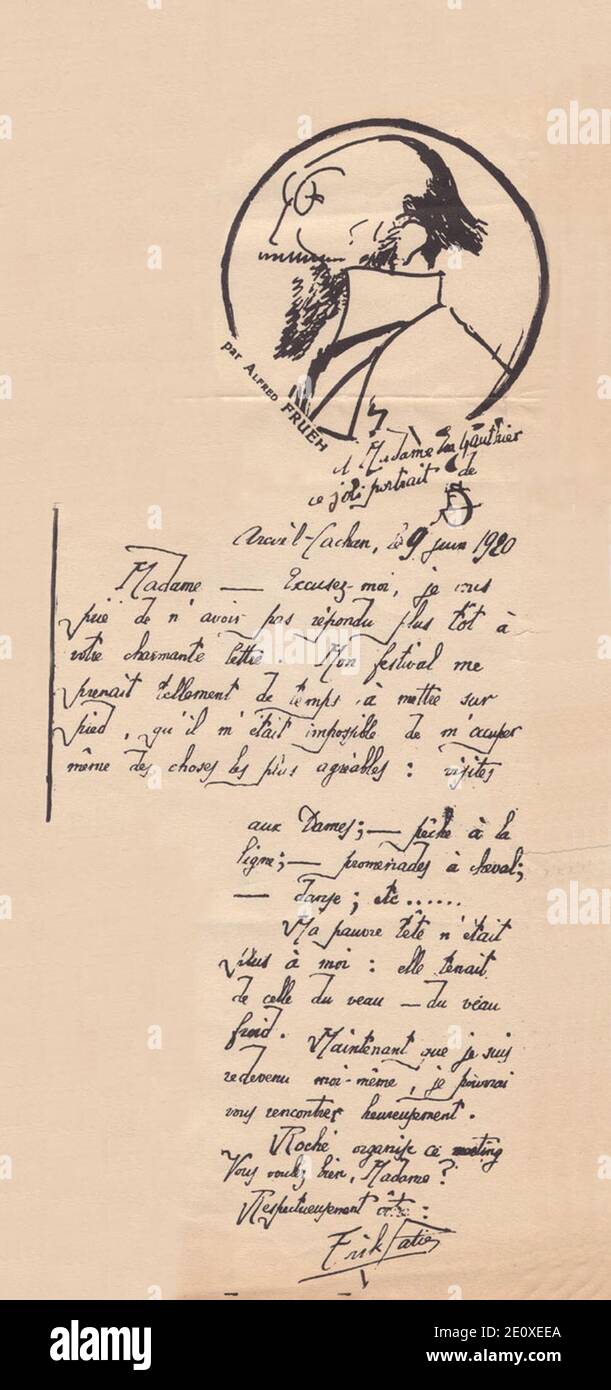 par ALFRED FRUEH
A Madame Eva Gauthier
ce joli portrait de
ES
Arcueil-Cachan, le 9 juin 1920
Madame — Excusez-moi, je vous
prie de n'avoir pas répondu plus tôt à
votre charmante lettre. Mon festival me
prenait tellement de temps à mettre sur
pied, qu'il m'était impossible de m'occuper
même des choses les plus agréables : visites
aux Dames; — pêche à la
ligne; — promenades à cheval;
— danse; etc......
Ma pauvre tête n'était
plus à moi : elle tenait
de celle du veau — du veau
froid. Maintenant que je suis
redevenu moi-même, je pourrai
vous rencontrer heureusement.
Roché organise ce meeting
Vous voulez bien, Madame?
Respectueusement vôtre :
Erik Satie
alamy
Image ID: 2E0XEEA
www.alamy.com